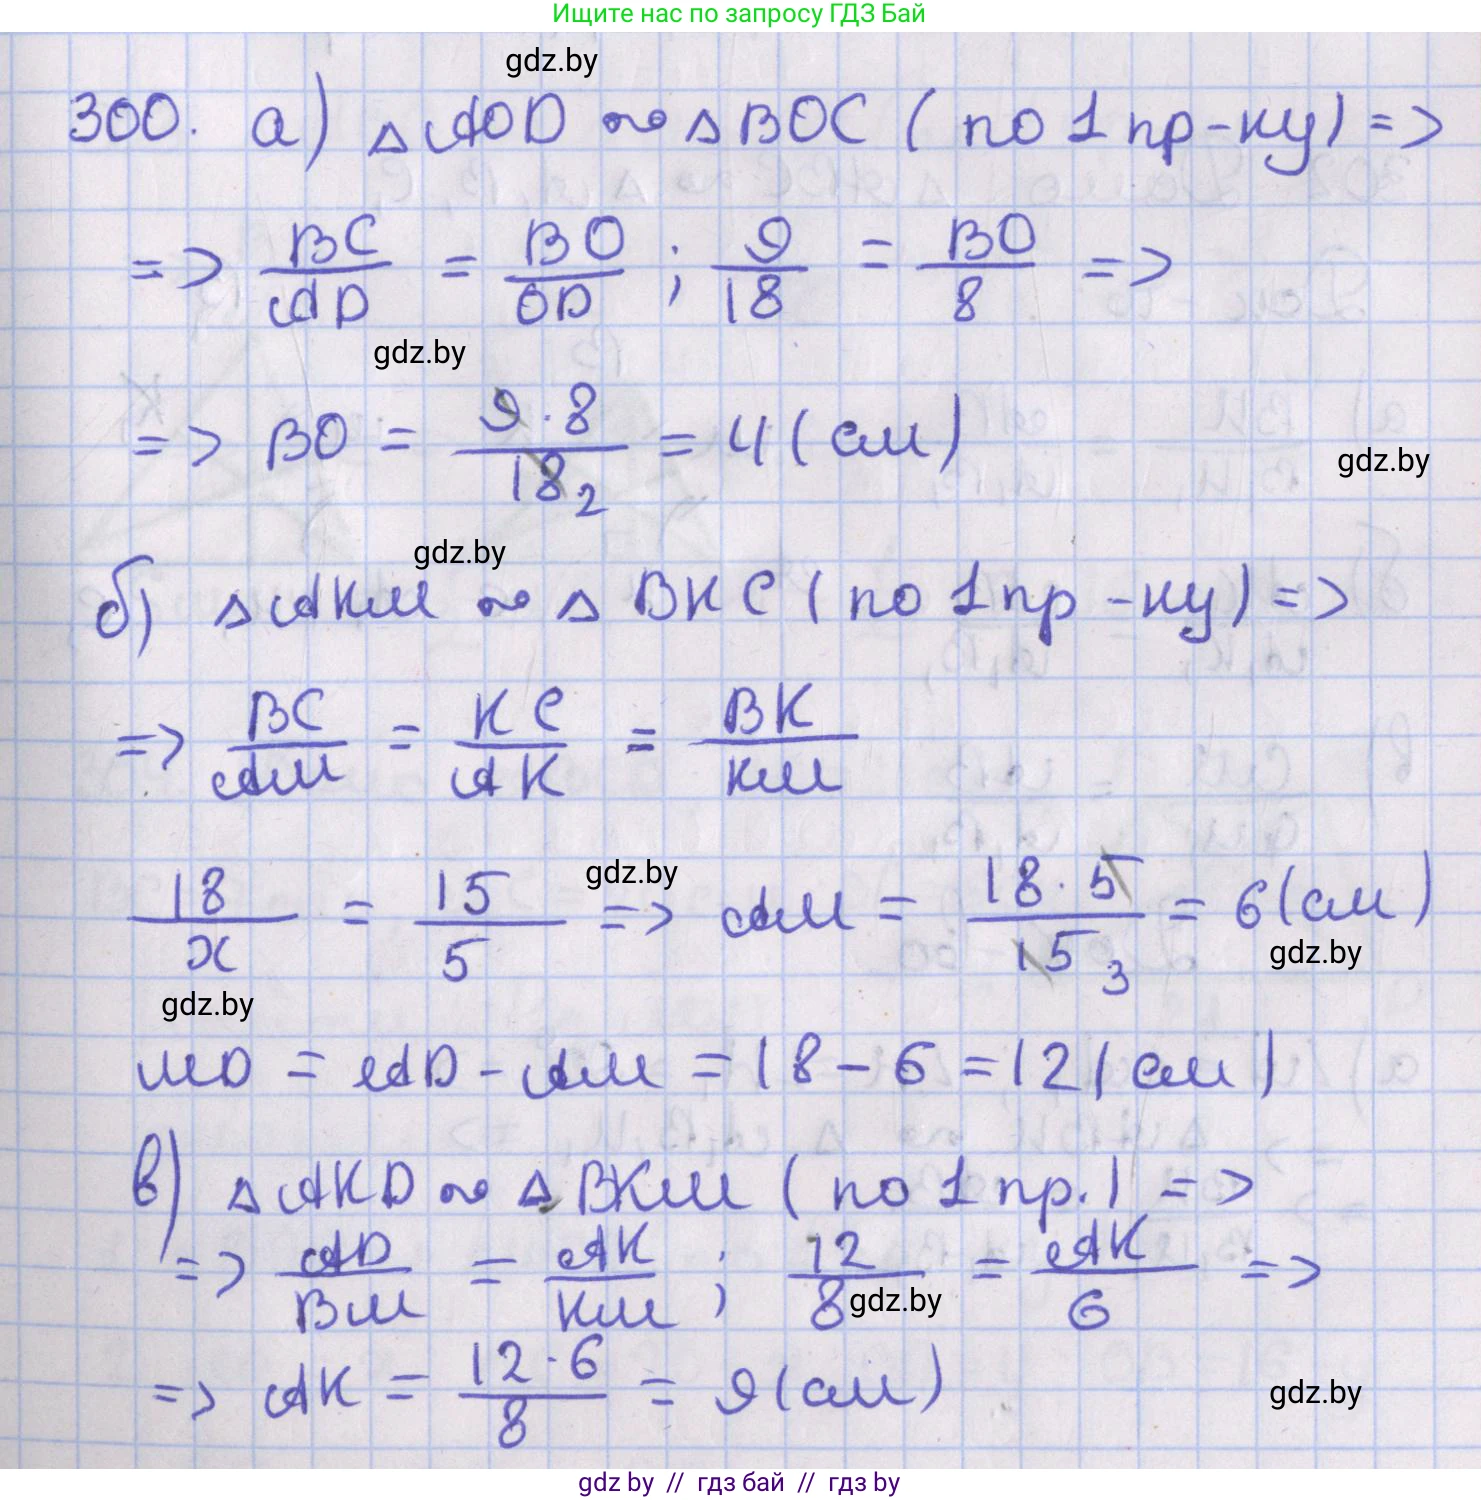 Ищите нас по запросу ГДЗ Бай
gdz.by
300. а) △AOD ~ △BOC (по 1 пр-ку) =>
=> BC/AD = BO/OD ; 9/18 = BO/8 =>
gdz.by
=> BO = 9·8/18 2 = 4 (см)
gdz.by
gdz.by
б) △AKM ~ △BKC (по 1 пр-ку) =>
=> BC/AM = KC/AK = BK/KM
gdz.by
18/x = 15/5 => AM = 18·5/15 3 = 6 (см)
gdz.by
gdz.by
MD = AD - AM = 18 - 6 = 12 (см)
в) △AKD ~ △BKM (по 1 пр.) =>
=> AD/BM = AK/KM ; 12/8 = AK/6 =>
gdz.by
=> AK = 12·6/8 = 9 (см)
gdz.by
gdz by // гдз бай // гдз by